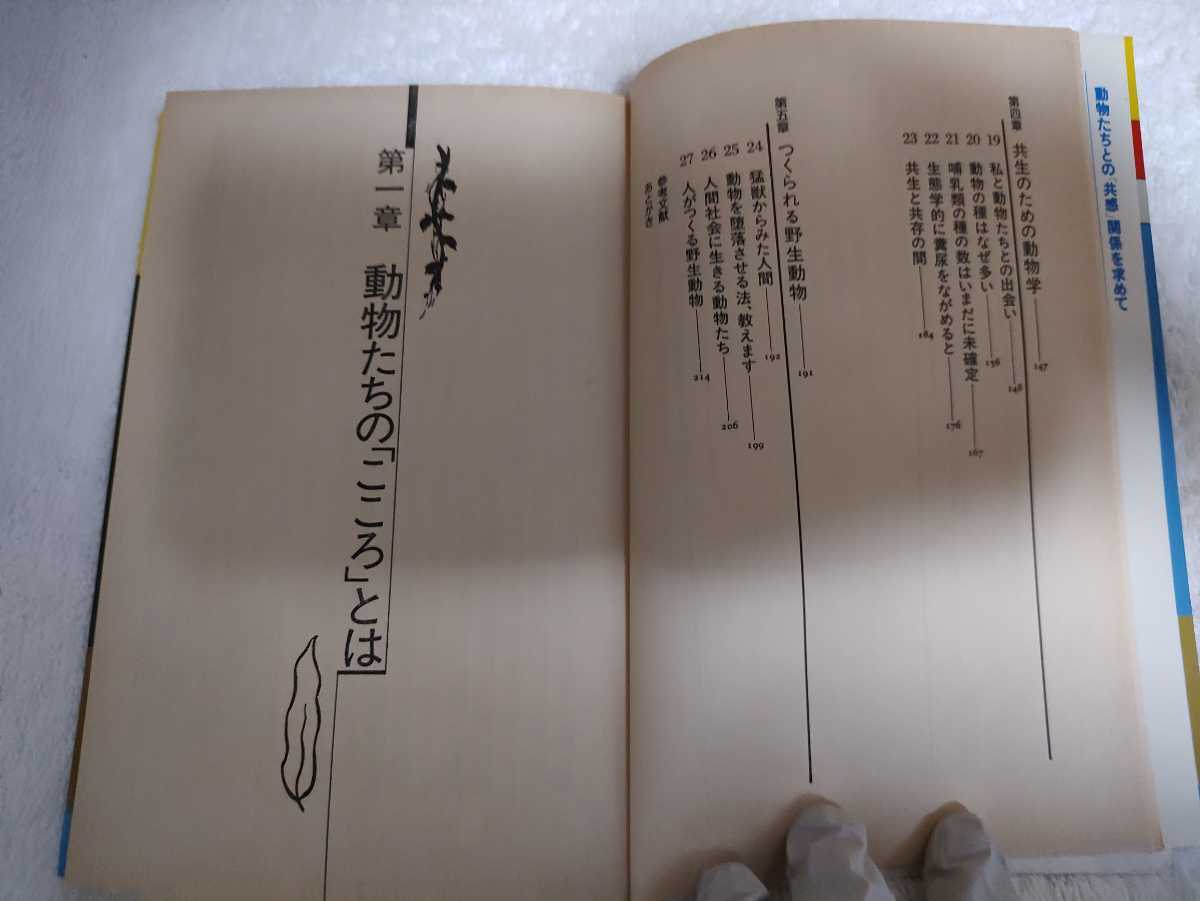 動物たちとの「共感」関係を求めて
第四章 共生のための動物学 147
19 私と動物たちとの出会い 148
20 動物の種はなぜ多い 156
21 哺乳類の種の数はいまだに未確定 167
22 生態学的に糞尿をながめると 176
23 共生と共存の間 184
第五章 つくられる野生動物 191
24 猛獣からみた人間 192
25 動物を堕落させる法、教えます 199
26 人間社会に生きる動物たち 206
27 人がつくる野生動物 214
参考文献
あとがき
第一章 動物たちの「こころ」とは